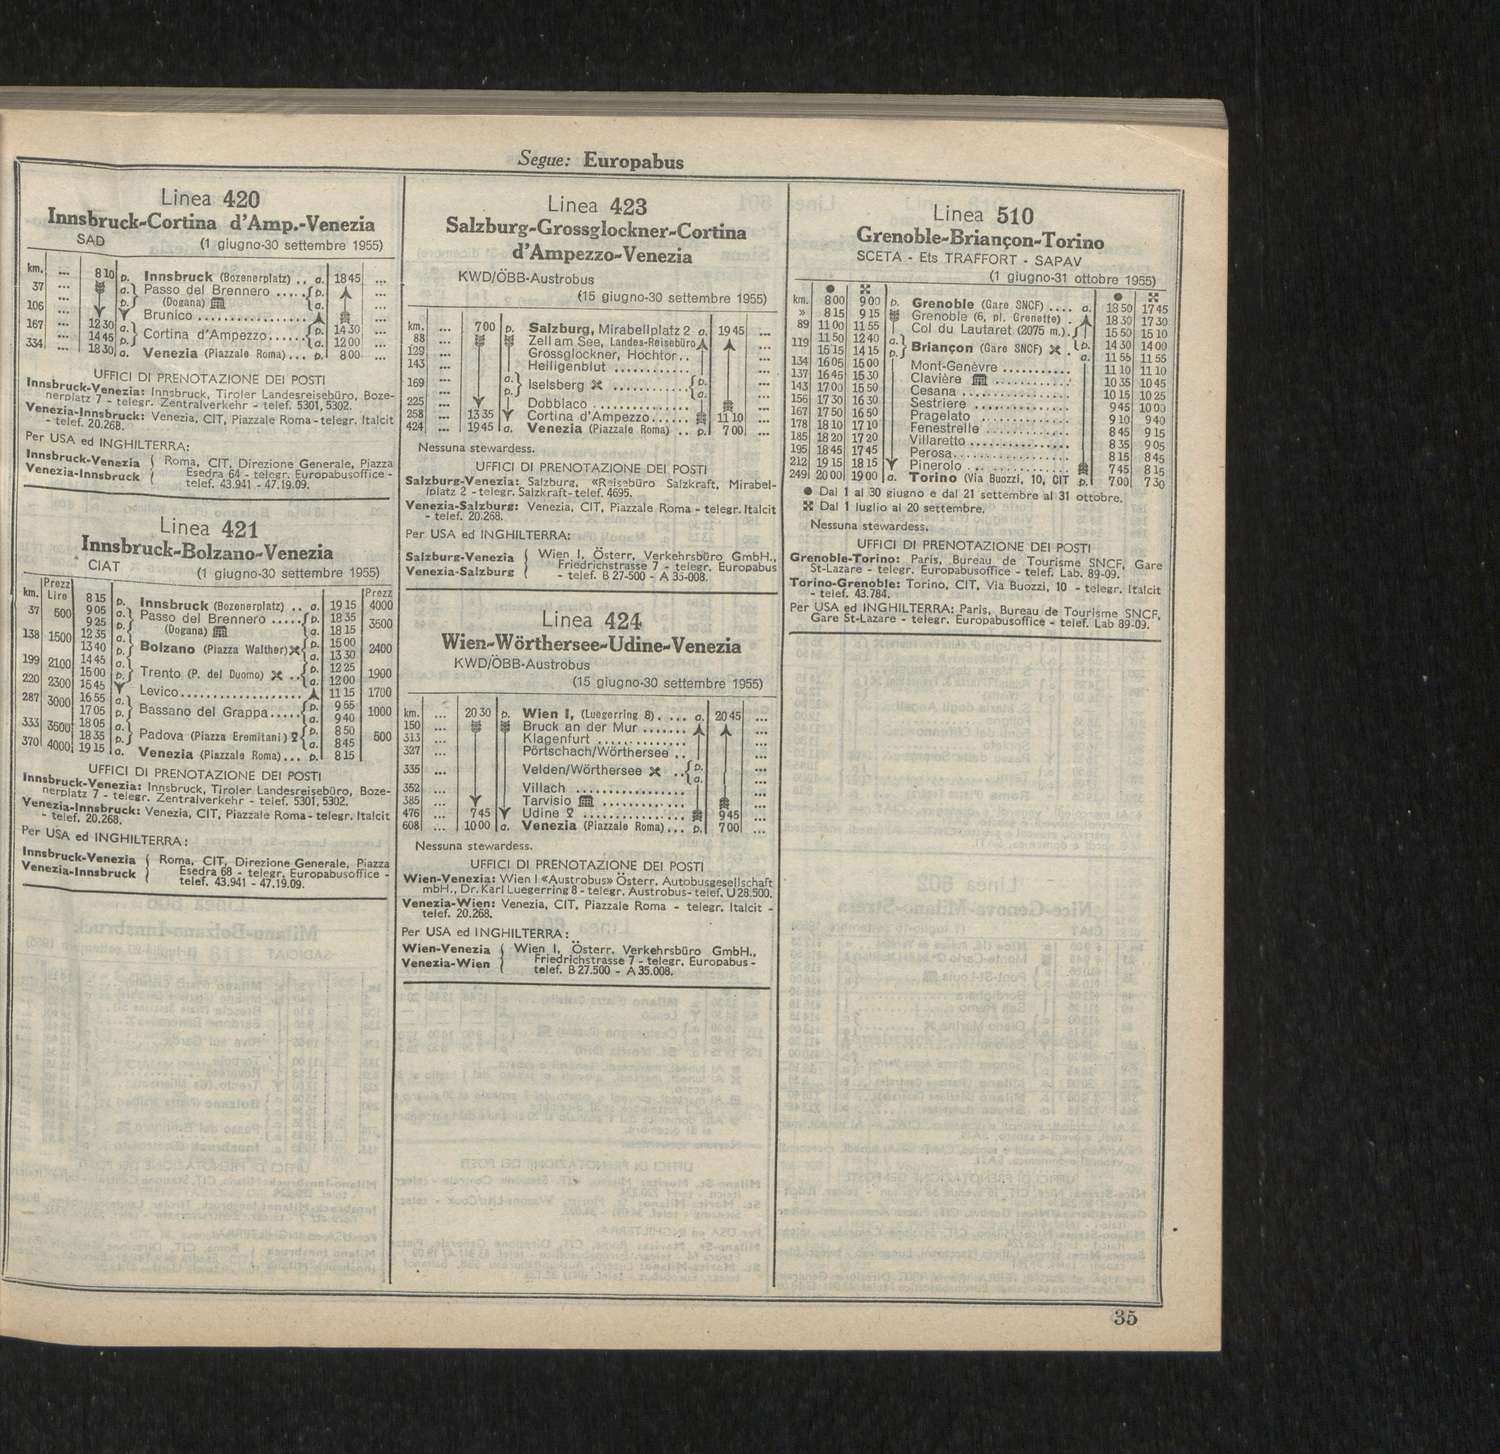 Segue: Europabus
Linea 420
Innsbruck-Cortina d'Amp.-Venezia
SAD (1 giugno-30 settembre 1955)
km. ... 8 10 p. Innsbruck (Bozenerplatz) .. a. 18 45 ...
37 ... a. Passo del Brennero .... p. ...
... p. (Dogana) a. ...
106 ... Brunico ............ ...
167 ... 12 30 a. Cortina d'Ampezzo...... p. 14 30 ...
... 14 45 p. a. 12 00 ...
334 ... 18 30 a. Venezia (Piazzale Roma)... p. 8 00 ...
UFFICI DI PRENOTAZIONE DEI POSTI
Innsbruck-Venezia: Innsbruck, Tiroler Landesreisebüro, Boze-
nerplatz 7 - telegr. Zentralverkehr - telef. 5301, 5302.
Venezia-Innsbruck: Venezia, CIT, Piazzale Roma - telegr. Italcit
- telef. 20.268.
Per USA ed INGHILTERRA:
Innsbruck-Venezia { Roma, CIT, Direzione Generale, Piazza
Venezia-Innsbruck { Esedra 64 - telegr. Europabusoffice -
telef. 43.941 - 47.19.09.
Linea 421
Innsbruck-Bolzano-Venezia
CIAT (1 giugno-30 settembre 1955)
km. Prezz Lire 8 15 p. Innsbruck (Bozenerplatz) .. a. 19 15 Prezz 4000
37 500 9 05 a. Passo del Brennero ..... p. 18 35 3500
9 25 p. (Dogana) a. 18 15
138 1500 12 35 a. Bolzano (Piazza Walther) p. 15 00 2400
13 40 p. a. 13 30
199 2100 14 45 a. Trento (P. del Duomo) .. p. 12 25 1900
15 00 p. a. 12 00
220 2300 15 45 Levico.................... 11 15 1700
287 3000 16 55 a. Bassano del Grappa..... p. 9 55 1000
17 05 p. a. 9 40
333 3500 18 05 a. Padova (Piazza Eremitani) p. 8 50 500
18 35 p. a. 8 45
370 4000 19 15 a. Venezia (Piazzale Roma)... p. 8 15
UFFICI DI PRENOTAZIONE DEI POSTI
Innsbruck-Venezia: Innsbruck, Tiroler Landesreisebüro, Boze-
nerplatz 7 - telegr. Zentralverkehr - telef. 5301, 5302.
Venezia-Innsbruck: Venezia, CIT, Piazzale Roma - telegr. Italcit
- telef. 20.268.
Per USA ed INGHILTERRA:
Innsbruck-Venezia { Roma, CIT, Direzione Generale, Piazza
Venezia-Innsbruck { Esedra 68 - telegr. Europabusoffice -
telef. 43.941 - 47.19.09.
Linea 423
Salzburg-Grossglockner-Cortina
d'Ampezzo-Venezia
KWD/ÖBB-Austrobus
(15 giugno-30 settembre 1955)
km. ... 7 00 p. Salzburg, Mirabellplatz 2 a. 19 45 ...
88 ... Zell am See, Landes-Reisebüro ...
129 ... Grossglockner, Hochtor.. ...
143 ... Heiligenblut ............ ...
169 ... a. p. Iselsberg ............ p. a. ...
225 ... Dobbiaco .............. ...
258 ... 13 35 Cortina d'Ampezzo...... 11 10 ...
424 ... 19 45 a. Venezia (Piazzale Roma) .. p. 7 00 ...
Nessuna stewardess.
UFFICI DI PRENOTAZIONE DEI POSTI
Salzburg-Venezia: Salzburg, «Reisebüro Salzkraft, Mirabel-
lplatz 2 - telegr. Salzkraft - telef. 4695.
Venezia-Salzburg: Venezia, CIT, Piazzale Roma - telegr. Italcit
- telef. 20.268.
Per USA ed INGHILTERRA:
Salzburg-Venezia { Wien I. Österr. Verkehrsbüro GmbH.,
Venezia-Salzburg { Friedrichstrasse 7 - telegr. Europabus
- telef. B 27-500 - A 35-008.
Linea 424
Wien-Wörthersee-Udine-Venezia
KWD/ÖBB-Austrobus
(15 giugno-30 settembre 1955)
km. ... 20 30 p. Wien I, (Luegerring 8). ... a. 20 45 ...
150 ... Bruck an der Mur ....... ...
313 ... Klagenfurt .............. ...
327 ... Pörtschach/Wörthersee .. ...
335 ... Velden/Wörthersee .. p. a. ...
352 ... Villach .................. ...
385 ... Tarvisio ............ ...
476 ... 7 45 Udine ................ 9 45 ...
608 ... 10 00 a. Venezia (Piazzale Roma)... p. 7 00 ...
Nessuna stewardess.
UFFICI DI PRENOTAZIONE DEI POSTI
Wien-Venezia: Wien I «Austrobus» Österr. Autobusgesellschaft
mbH., Dr. Karl Luegerring 8 - telegr. Austrobus - telef. U 28.500.
Venezia-Wien: Venezia, CIT, Piazzale Roma - telegr. Italcit -
telef. 20.268.
Per USA ed INGHILTERRA:
Wien-Venezia { Wien I. Österr. Verkehrsbüro GmbH.,
Venezia-Wien { Friedrichstrasse 7 - telegr. Europabus -
telef. B 27.500 - A 35.008.
Linea 510
Grenoble-Briançon-Torino
SCETA - Ets TRAFFORT - SAPAV
(1 giugno-31 ottobre 1955)
km. 8 00 9 00 p. Grenoble (Gare SNCF) .... a. 18 50 17 45
» 8 15 9 15 Grenoble (6, pl. Grenette) . 18 30 17 30
89 11 00 11 55 Col du Lautaret (2075 m.). 15 50 15 10
119 11 50 12 40 a. Briançon (Gare SNCF) . p. 14 30 14 00
15 15 14 15 p. a. 11 55 11 55
134 16 05 15 00 Mont-Genèvre ........... 11 10 11 10
137 16 45 15 30 Clavière ............ 10 35 10 45
143 17 00 15 50 Cesana ................. 10 15 10 25
156 17 30 16 30 Sestriere ................ 9 45 10 00
167 17 50 16 50 Pragelato ............... 9 10 9 40
178 18 10 17 10 Fenestrelle .............. 8 45 9 15
185 18 20 17 20 Villaretto ................ 8 35 9 05
195 18 45 17 45 Perosa................... 8 15 8 45
212 19 15 18 15 Pinerolo ................. 7 45 8 15
249 20 00 19 00 a. Torino (Via Buozzi, 10, CIT p. 7 00 7 30
● Dal 1 al 30 giugno e dal 21 settembre al 31 ottobre.
Dal 1 luglio al 20 settembre.
Nessuna stewardess.
UFFICI DI PRENOTAZIONE DEI POSTI
Grenoble-Torino: Paris, Bureau de Tourisme SNCF, Gare
St-Lazare - telegr. Europabusoffice - telef. Lab. 89-09.
Torino-Grenoble: Torino, CIT, Via Buozzi, 10 - telegr. Italcit
- telef. 43.784.
Per USA ed INGHILTERRA: Paris, Bureau de Tourisme SNCF,
Gare St-Lazare - telegr. Europabusoffice - telef. Lab 89-09.
35